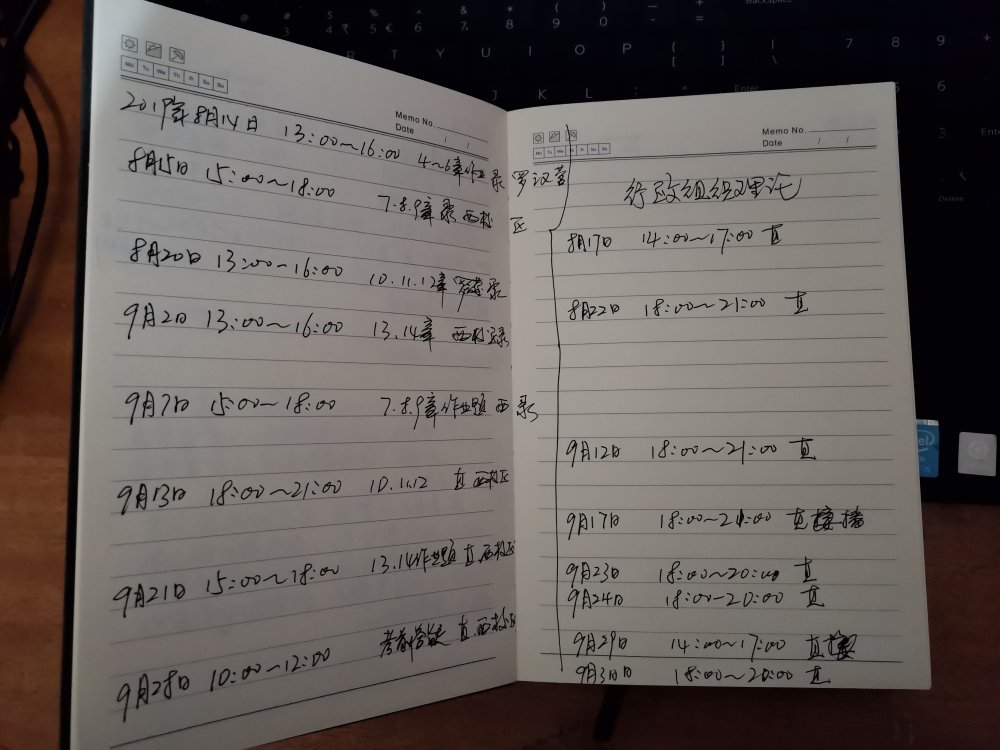 Mo Tu We Th Fr Sa Su
Memo No.
Date / /
2019年8月14日 13:00~16:00 4~6章作业 录 罗汉
8月15日 15:00~18:00 7.8.9章 录 西校区
8月20日 13:00~16:00 10.11.12章 录
9月2日 13:00~16:00 13.14章 西校区录
9月7日 15:00~18:00 7.8.9章作业题 西 录
9月13日 18:00~21:00 10.11.12 直 西校区
9月21日 15:00~18:00 13.14作业题 直 西校区
考前 直 西校区
9月28日 10:00~12:00
Mo Tu We Th Fr Sa Su
Memo No.
Date / /
行政组织理论
8月17日 14:00~17:00 直
8月22日 18:00~21:00 直
9月12日 18:00~21:00 直
9月17日 18:00~21:00 直播
9月23日 18:00~20:00 直
9月24日 18:00-20:00 直
9月29日 14:00~17:00 直
9月30日 18:00~20:00 直
Backspace
R T Y U I O P
J K L
Enter
7 8 9 +
Delete
intel